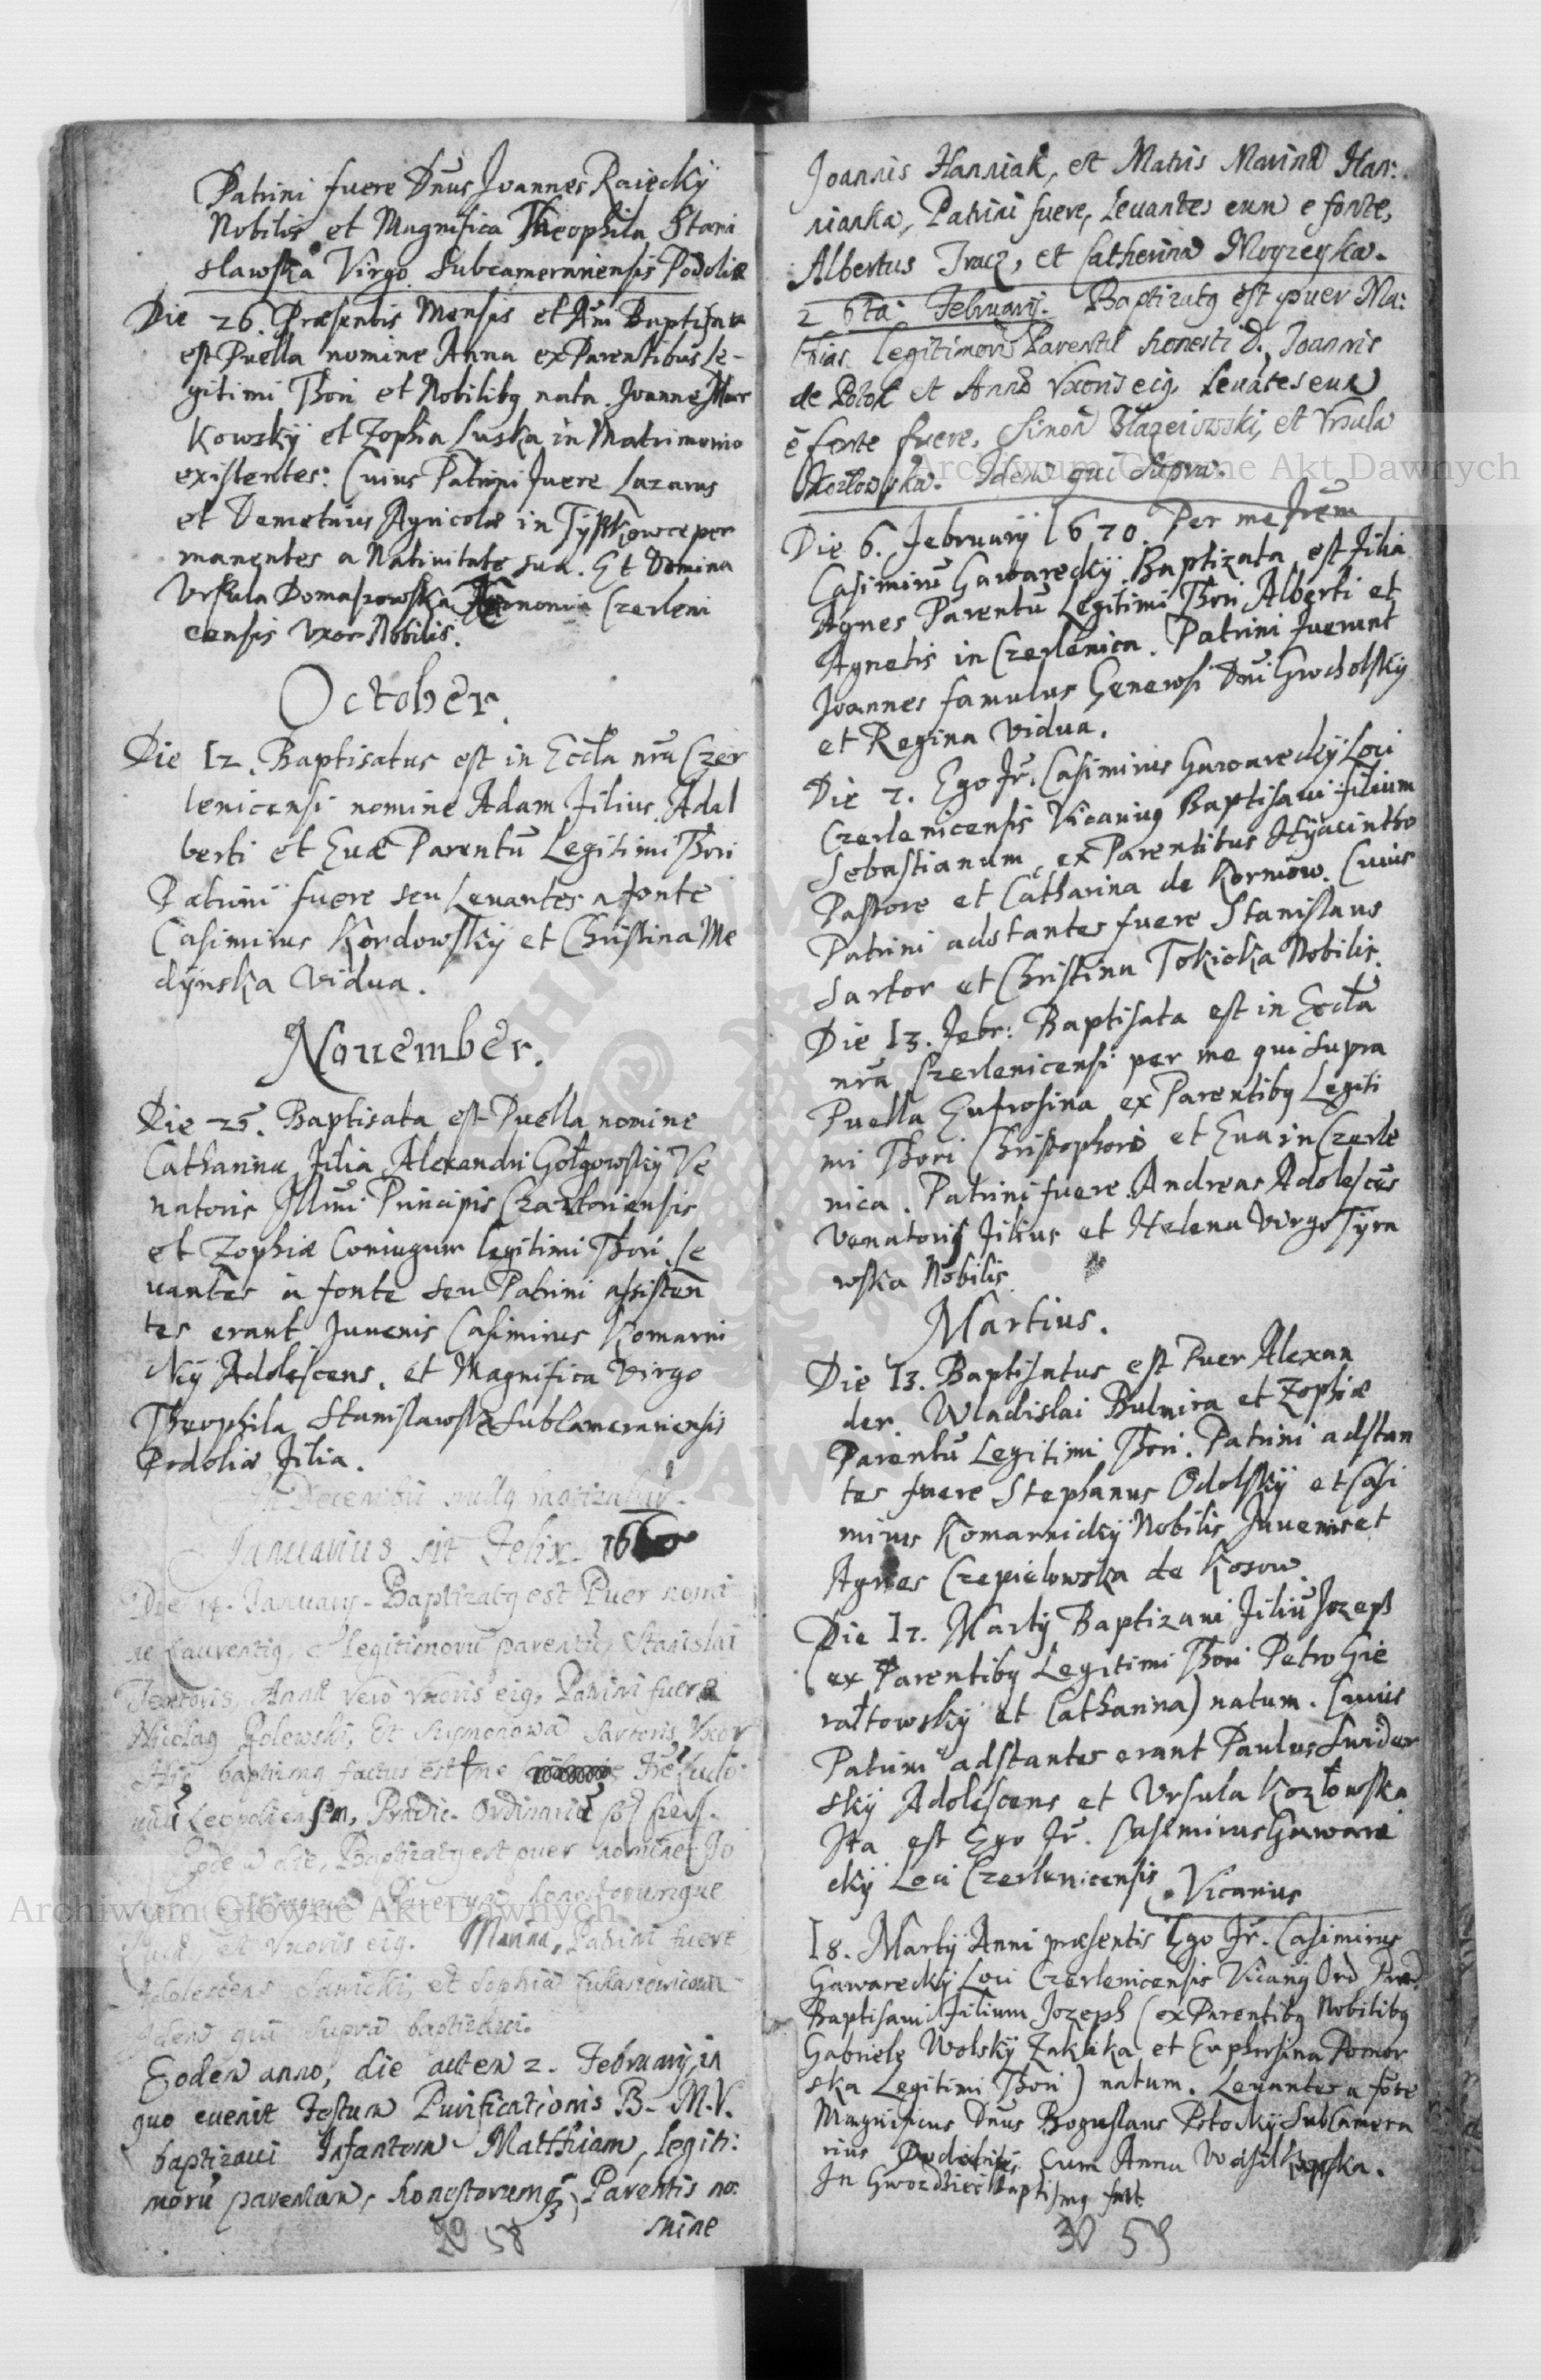 Patrini fuere Dnus Joannes Raiecky
Nobilis et Magnifica Theophila Stani
slawska Virgo Subcamerariensis Podoliæ
Die 26. Præsentis Mensis et Ani Baptisata
est Puella nomine Anna ex Parentibus Le-
gitimi Thori et Nobilibq nata. Joanne
kowsky et Zophia Luska in Matrimonio
existentes: Cuius Patrini fuere Lazarus
et Demetrius Agricolæ in Tyszkowce per
manentes a Nativitate sua. Et Domina
Ursula Domaszowska Czerleni
censis Uxor Nobilis.
October.
Die 12. Baptisatus est in Eccla nra Czer
lenicensi nomine Adam Filius Adal
berti et Euæ Parentũ Legitimi Thori
Patrini fuere seu Leuantes a fonte
Casimirus Kordowsky et Christina Me
dynska Vidua.
Nouember.
Die 25. Baptisata est Puella nomine
Catharina Filia Alexandri Gołgowsky Ve
natoris Illmi Principis Czartoriensis
et Zophiæ Coniugum legitimi Thori, Le
uantes a fonte seu Patrini assisten
tes erant Juuenis Casimirus Komarni
cky Adolescens, et Magnifica Virgo
Theophila Stanislawska Subcamerariensis
Podoliæ Filia.
In Decembri nullq baptizatur.
Januarius sit Felix. 16
Die 14. January. Baptizatq est Puer nomi
ne Laurentiq, legitimorũ parentũ, Stanislai
Textoris, Annæ vero Uxoris eiq, Patrini fuere
Nicolaq Golewski, Et Symonowa Sartoris Uxor
baptismq factus est
Leopoliensem, Prædic. Ordinariũ
Eodem die, Baptizatq est puer nomine Jo
Parentum honestorumque
et Uxoris eiq. Marina, Patrini fuere
Adolescens Sawicki, et Sophia Łukasiowicowna
Idem qui supra baptizavi.
Eodem anno, die autem 2. February, in
quo euenit Festum Purificationis B. M. V.
baptizaui Infantem Matthiam, legiti:
morũ parentum, honestorumq, Parentis no:
mine
29 58
Joannis Hanniak, et Matris Marinæ Han:
nianka, Patrini fuere, Leuantes eum e fonte,
Albertus Tracz, et Catherina Moyzeyska.
26ta February. Baptizatq est puer Ma:
thias Legitimorũ Parentũ honesti D. Joannis
de Potok et Annæ Uxoris eiq, Leuãtes eum
e fonte fuere, Simon Błazeiowski, et Ursula
Kozłowska. Idem qui supra.
Die 6. February 1670. Per me Frem
Casimirũ Gawarecky Baptizata est Filia
Agnes Parentũ Legitimi Thori Alberti et
Agnetis in Czerlenica. Patrini fuerunt
Joannes famulus Generosi Dni Grocholsky
et Regina Vidua.
Die 7. Ego Fr. Casimirus Gawarecky Loci
Czerlenicensis Vicariq Baptisaui Filium
Sebastianum, ex Parentibus Hyacintho
Pastore et Catharina de Korniow. Cuius
Patrini adstantes fuere Stanislaus
Sartor et Christina Tokicka Nobilis.
Die 13. Febr: Baptisata est in Eccla
nra Czerlenicensi per me qui supra
Puella Eufrosina ex Parentibq Legiti
mi Thori Christophoro et Eua in Czerle
nica. Patrini fuere Andreas Adolescẽs
Venatoris Filius et Helena Virgo Tyra
wska Nobilis.
Martius.
Die 13. Baptisatus est Puer Alexan
der Wladislai Bulnira et Zophiæ
Parentũ Legitimi Thori. Patrini adstan
tes fuere Stephanus Odolsky et Casi
mirus Komarnicky Nobilis Juuenis et
Agnes Czepielowska de Kosow
Die 17. Marty Baptizaui Filiũ Jozeph
(ex Parentibq Legitimi Thori Petro Gie
rałtowsky et Catharina) natum. Cuius
Patrini adstantes erant Paulus Swider
sky Adolescens et Ursula Kozłowska
Ita est Ego Fr. Casimirus Gaware
cky Loci Czerlenicensis Vicarius
18. Marty Anni præsentis Ego Fr. Casimirus
Gawarecky Loci Czerlenicensis Vicariq Ord Præd.
Baptisaui Filium Jozeph (ex Parentibq Nobilibq
Gabriele Wolsky Zaklika et Euphrosina Pomor
ska Legitimi Thori) natum. Leuantes a fõte
Magnificus Dnus Boguslaus Potocky SubCamera
rius Podoliæ cum Anna
In Gwozdziec Baptismq fuit.
30 59
Archiwum Główne Akt Dawnych
Archiwum Główne Akt Dawnych